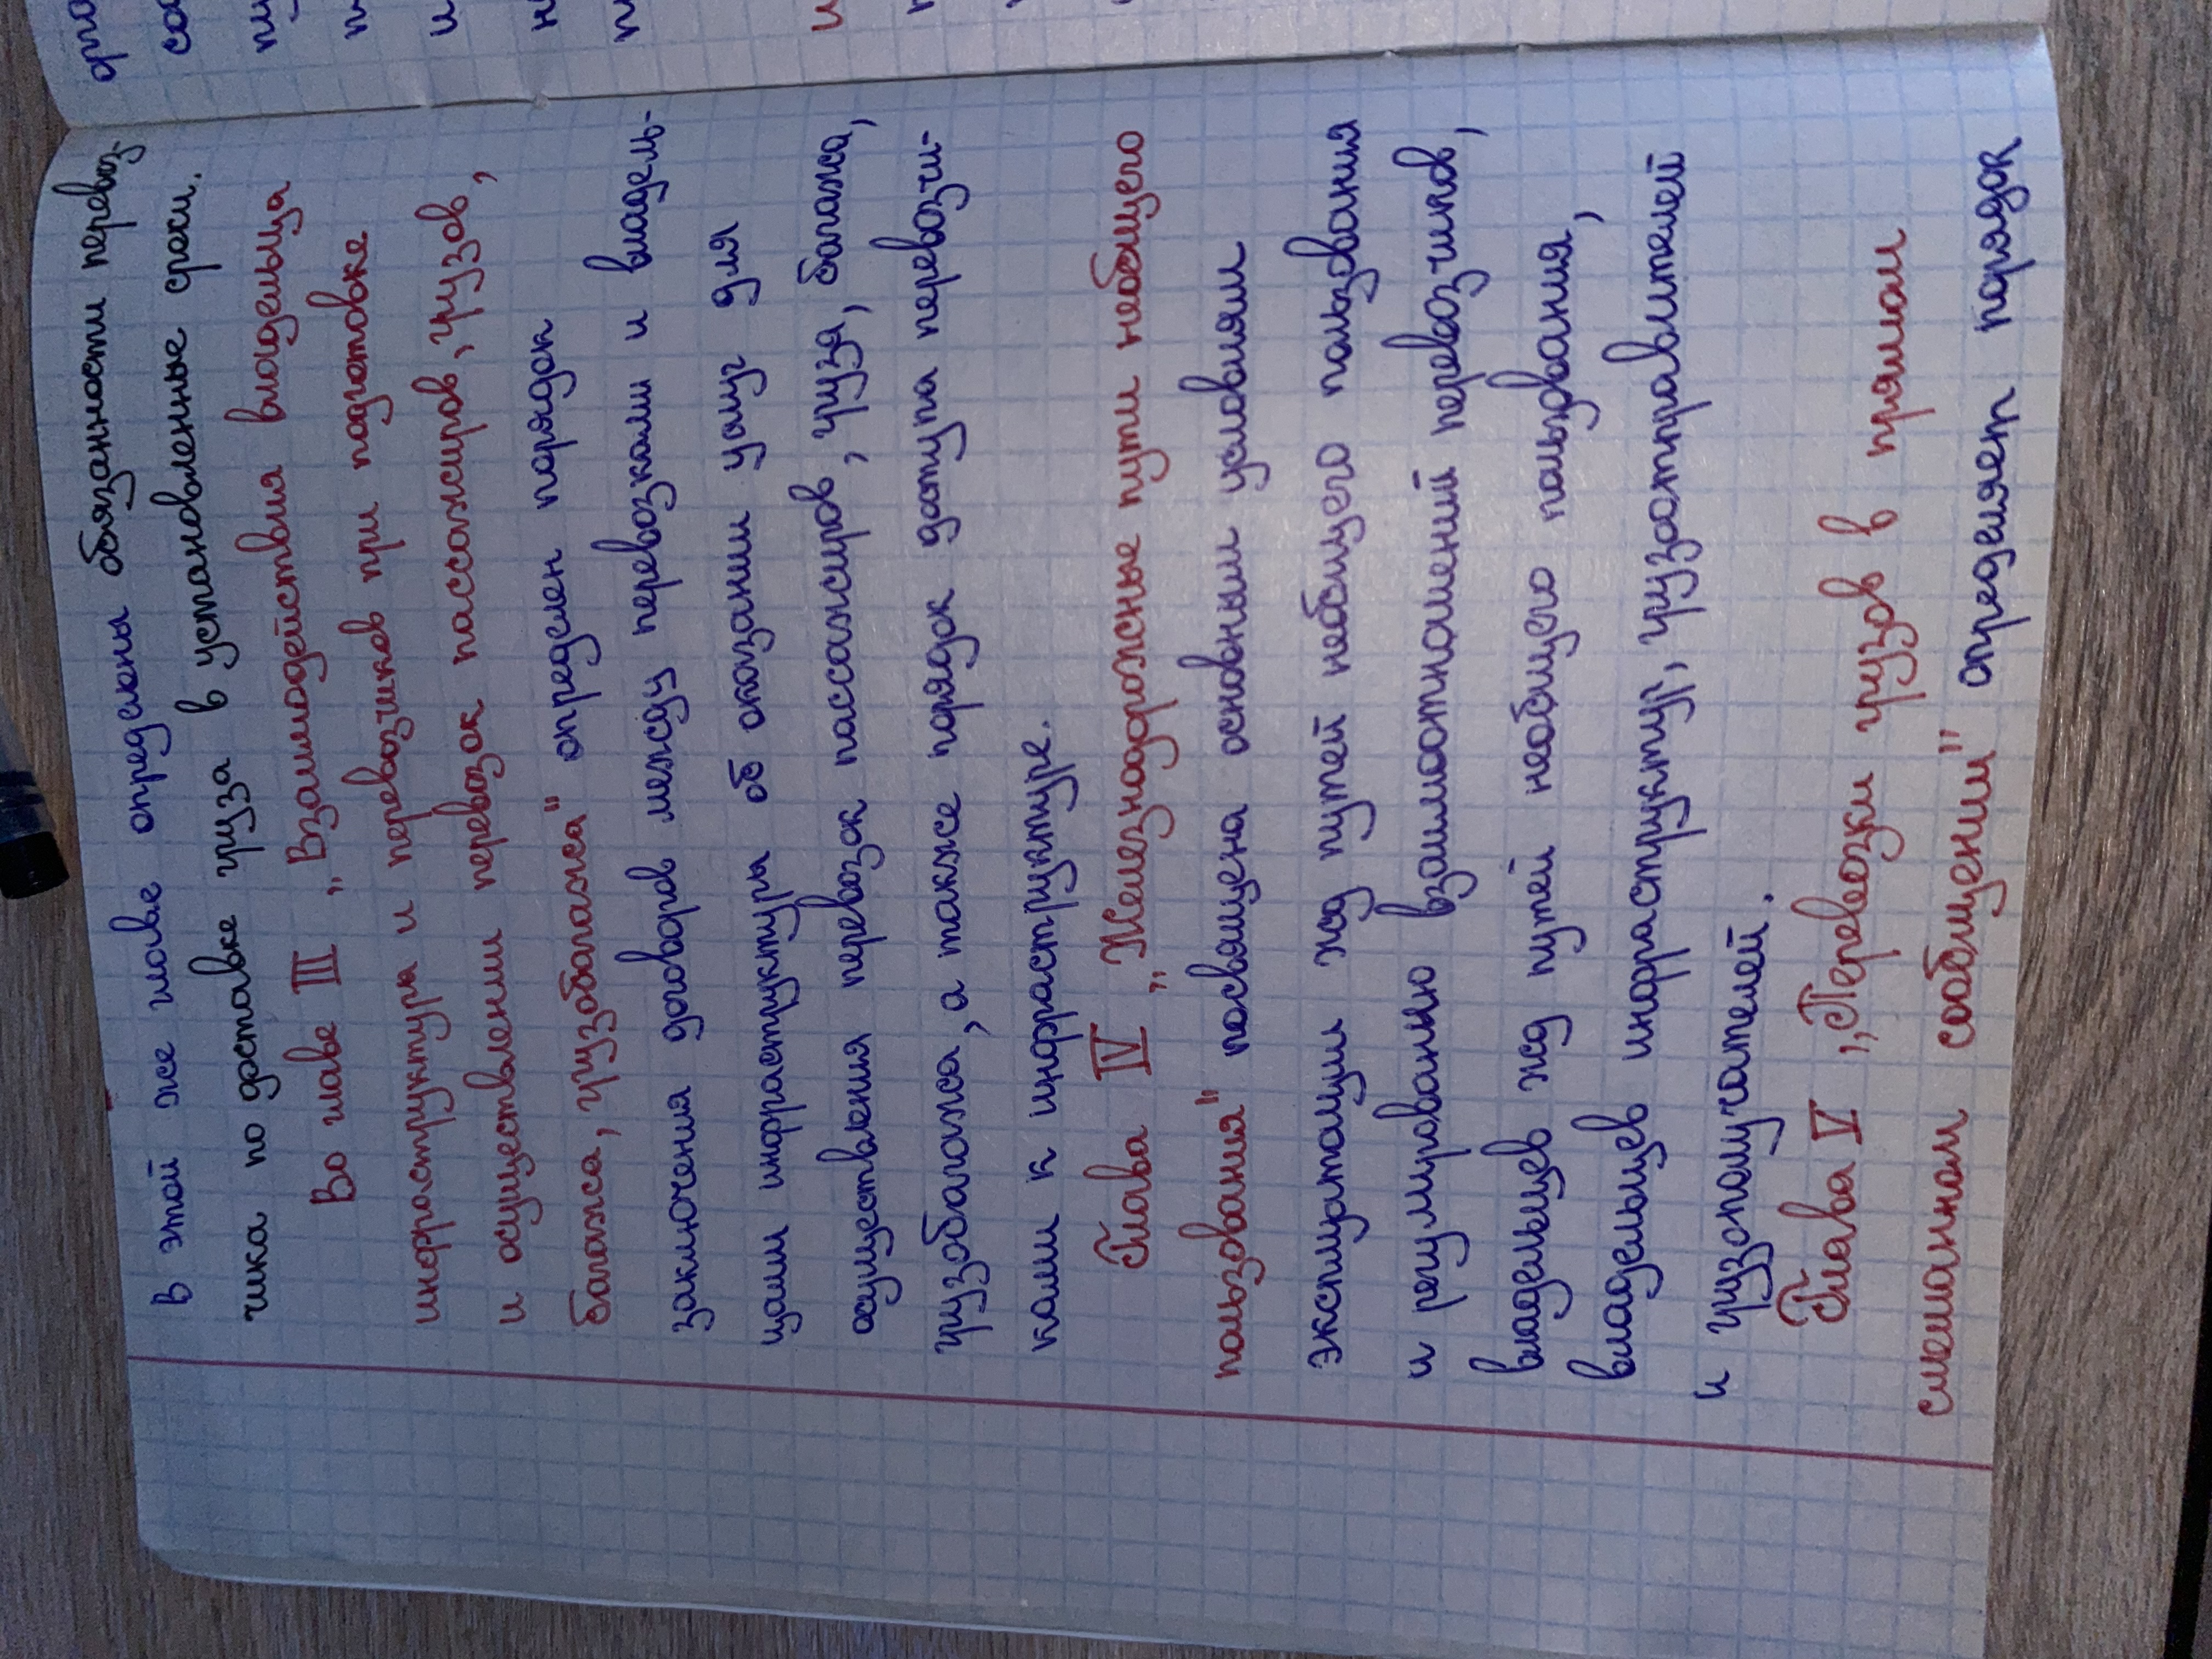 в этой же главе определены обязанности перевоз-
чика по доставке груза в установленные сроки.
Во главе III „Взаимодействия владельца
инфраструктура и перевозчиков при подготовке
и осуществлении перевозок пассажиров, грузов,
багажа, грузобагажа" определен порядок
заключения договоров между перевозками и владель-
цами инфраструктуры об оказании услуг для
осуществления перевозок пассажиров, груза, багажа,
грузобагажа, а также порядок доступа перевозчи-
ками к инфраструктуре.
Глава IV „Железнодорожные пути необщего
пользования" посвящена основным условиям
эксплуатации жд путей необщего пользования
и регулированию взаимоотношений перевозчиков,
владельцев жд путей необщего пользования,
владельцев инфраструктур, грузоотправителей
и грузополучателей.
Глава V „Перевозки грузов в прямом
смешанном сообщении" определяет порядок